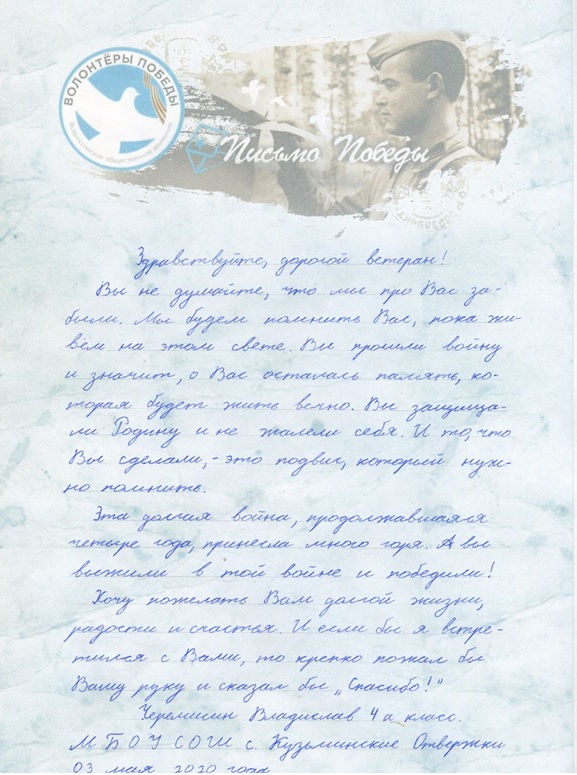 ВОЛОНТЁРЫ ПОБЕДЫ
Всероссийское общественное движение
Письмо Победы
Здравствуйте, дорогой ветеран!
Вы не думайте, что мы про Вас за-
были. Мы будем помнить Вас, пока жи-
вём на этом свете. Вы прошли войну
и значит, о Вас осталась память, ко-
торая будет жить вечно. Вы защища-
ли Родину и не жалели себя. И то, что
Вы сделали, - это подвиг, который нуж-
но помнить.
Эта долгая война, продолжавшаяся
четыре года, принесла много горя. А вы
выжили в той войне и победили!
Хочу пожелать Вам долгой жизни,
радости и счастья. И если бы я встре-
тился с Вами, то крепко пожал бы
Вашу руку и сказал бы „Спасибо!"
Черемисин Владислав 4 а класс.
МБОУ СОШ с. Кузьминские Отвержки
03 мая 2020 года